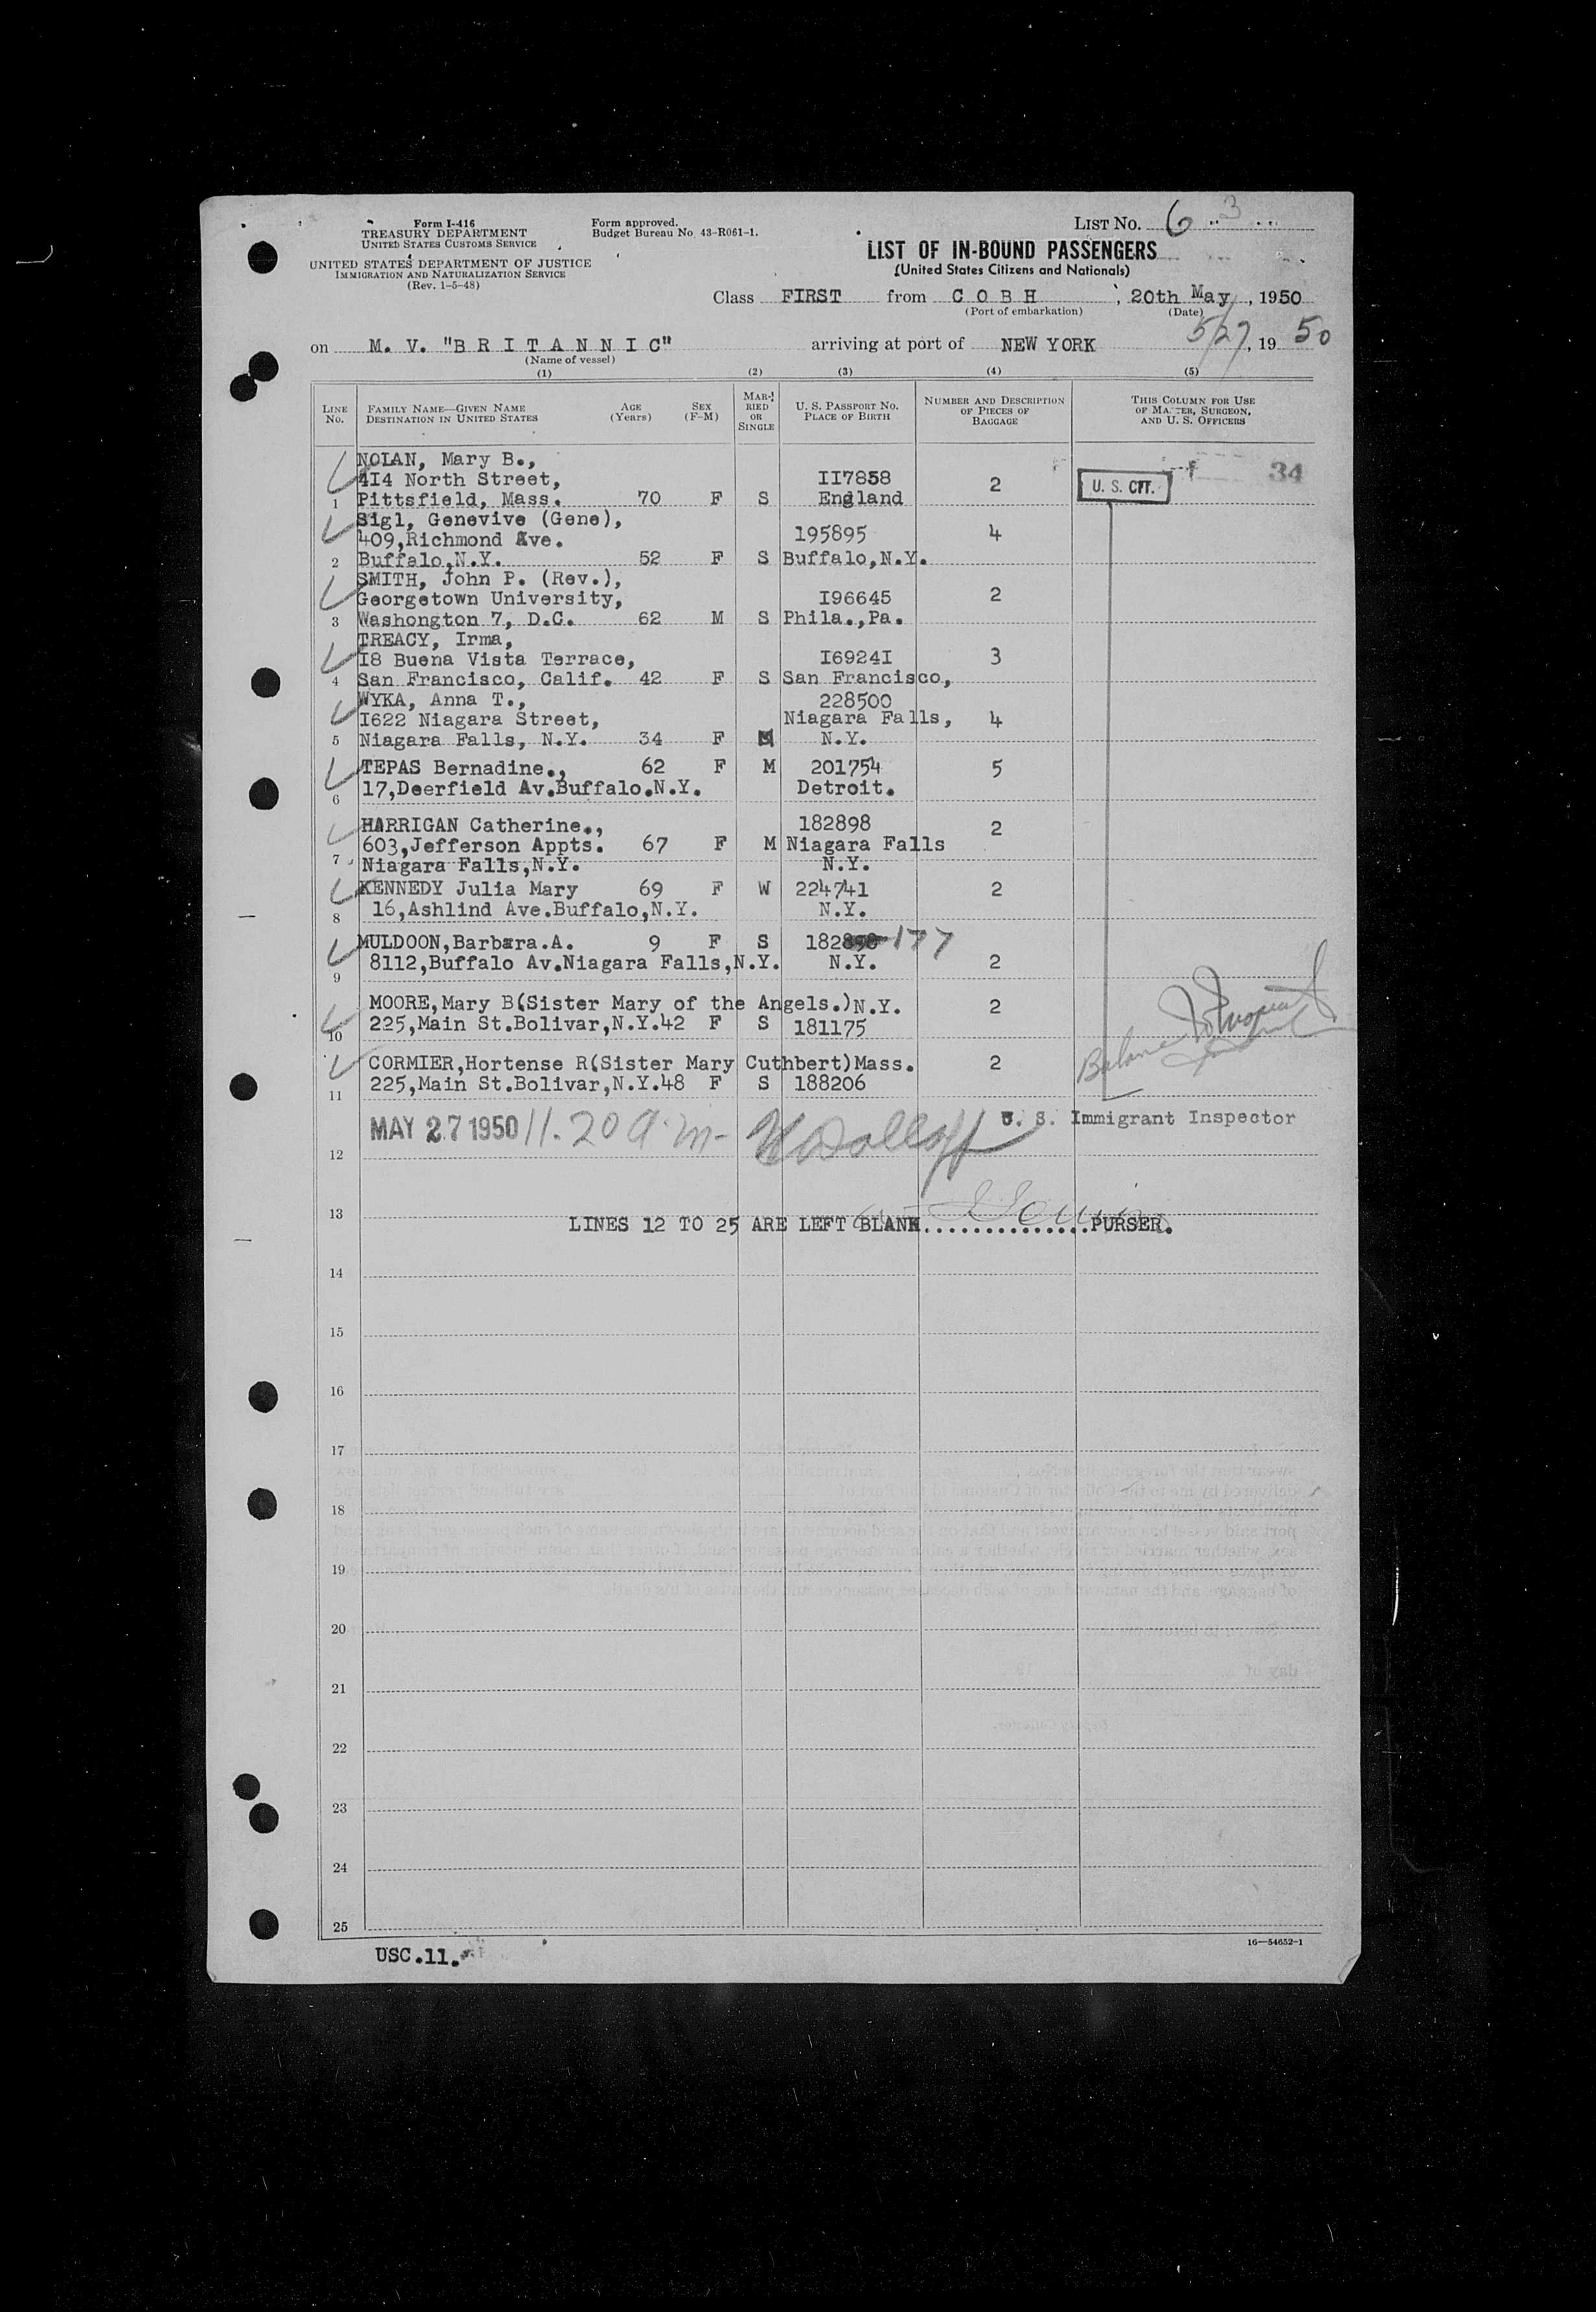 Form I-416
TREASURY DEPARTMENT
UNITED STATES CUSTOMS SERVICE
UNITED STATES DEPARTMENT OF JUSTICE
IMMIGRATION AND NATURALIZATION SERVICE
(Rev. 1-5-48)
Form approved.
Budget Bureau No. 43-R061-1.
LIST No. 6 3
LIST OF IN-BOUND PASSENGERS
(United States Citizens and Nationals)
Class FIRST from C O B H, 20th May, 1950
(Port of embarkation) (Date)
on M. V. "B R I T A N N I C" arriving at port of NEW YORK 5/27, 19 50
(Name of vessel)
(1) (2) (3) (4) (5)
LINE No. FAMILY NAME—GIVEN NAME DESTINATION IN UNITED STATES AGE (Years) SEX (F-M) MARRIED OR SINGLE U. S. PASSPORT NO. PLACE OF BIRTH NUMBER AND DESCRIPTION OF PIECES OF BAGGAGE THIS COLUMN FOR USE OF MASTER, SURGEON, AND U. S. OFFICERS
NOLAN, Mary B.,
4I4 North Street, II7858 2 U. S. CIT. 34
1 Pittsfield, Mass. 70 F S England
Sigl, Genevive (Gene),
409,Richmond Ave. 195895 4
2 Buffalo,N.Y. 52 F S Buffalo,N.Y.
SMITH, John P. (Rev.),
Georgetown University, I96645 2
3 Washongton 7, D.C. 62 M S Phila.,Pa.
TREACY, Irma,
I8 Buena Vista Terrace, I6924I 3
4 San Francisco, Calif. 42 F S San Francisco,
WYKA, Anna T., 228500
I622 Niagara Street, Niagara Falls, 4
5 Niagara Falls, N.Y. 34 F M N.Y.
TEPAS Bernadine., 62 F M 201754 5
6 17,Deerfield Av.Buffalo.N.Y. Detroit.
HARRIGAN Catherine., 182898 2
603,Jefferson Appts. 67 F M Niagara Falls
7 Niagara Falls,N.Y. N.Y.
KENNEDY Julia Mary 69 F W 224741 2
8 16,Ashlind Ave.Buffalo,N.Y. N.Y.
MULDOON,Barbara.A. 9 F S 182898 177
9 8112,Buffalo Av.Niagara Falls,N.Y. N.Y. 2
MOORE,Mary B(Sister Mary of the Angels.)N.Y. 2
10 225,Main St.Bolivar,N.Y.42 F S 181175
CORMIER,Hortense R(Sister Mary Cuthbert)Mass. 2
11 225,Main St.Bolivar,N.Y.48 F S 188206
MAY 27 1950 11.20 a.m- U. S. Immigrant Inspector
12
13
LINES 12 TO 25 ARE LEFT BLANK...............PURSER.
14
15
16
17
18
19
20
21
22
23
24
25
USC.11.
16—54652-1